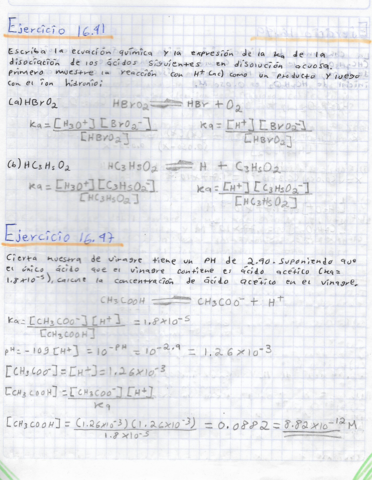 Ejercicio 16.41
Escriba la ecuación química y la expresión de la Ka de la
disociación de los ácidos siguientes en disolución acuosa.
primero muestre la reacción con H+(ac) como un producto y luego
con el ion hidronio:
(a) HBrO2 HBrO2 ⇌ HBr + O2
Ka = [H3O+][BrO2-] / [HBrO2] Ka = [H+][BrO2-] / [HBrO2]
(b) HC3H5O2 HC3H5O2 ⇌ H + C3H5O2
Ka = [H3O+][C3H5O2-] / [HC3H5O2] Ka = [H+][C3H5O2-] / [HC3H5O2]
Ejercicio 16.47
Cierta muestra de vinagre tiene un PH de 2.90. suponiendo que
el único ácido que el vinagre contiene el ácido acético (Ka=
1.8x10-5), calcule la concentración de ácido acético en el vinagre.
CH3COOH ⇌ CH3COO- + H+
Ka = [CH3COO-][H+] / [CH3COOH] = 1.8x10-5
pH = -log [H+] = 10-PH = 10-2.9 = 1.26x10-3
[CH3COO-] = [H+] = 1.26x10-3
[CH3COOH] = [CH3COO-][H+] / Ka
[CH3COOH] = (1.26x10-3)(1.26x10-3) / 1.8x10-5 = 0.0882 = 8.82x10-12 M